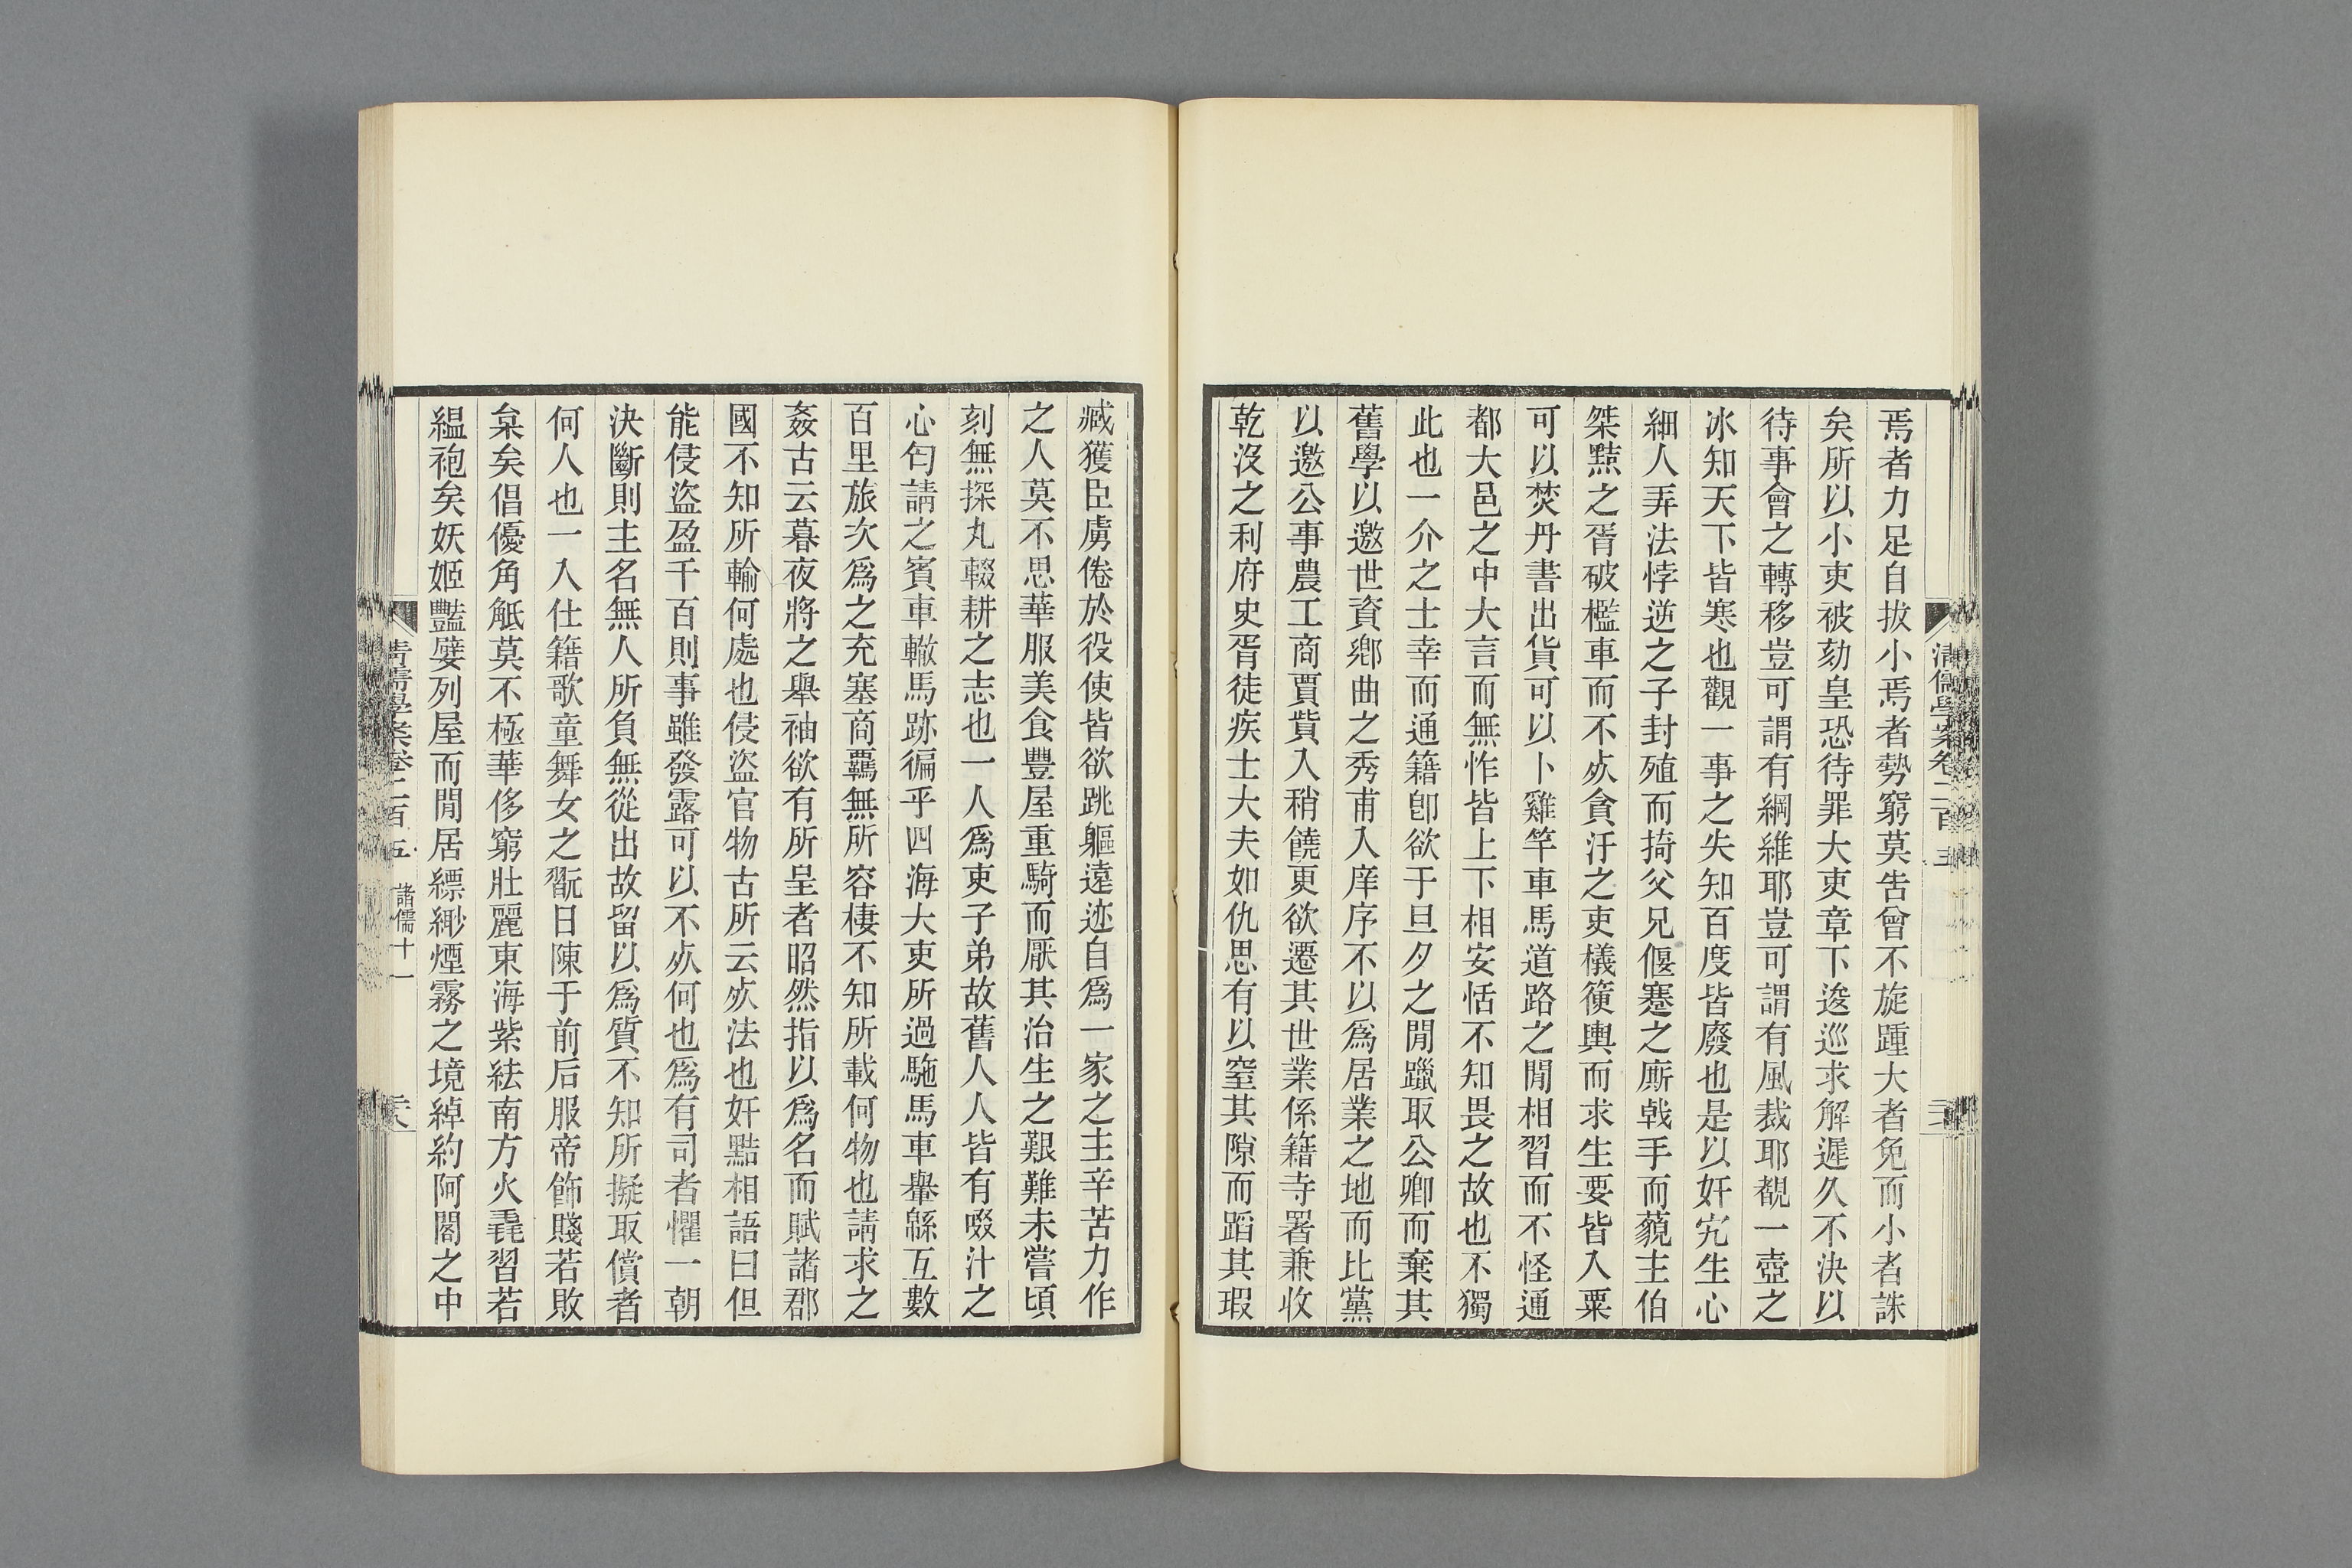 焉者力足自拔小焉者勢窮莫告曾不旋踵大者免而小者誅
矣所以小吏被劾皇恐待罪大吏章下逡巡求解遲久不決以
待事會之轉移豈可謂有綱維耶豈可謂有風裁耶覩一壺之
冰知天下皆寒也觀一事之失知百度皆廢也是以奸宄生心
細人弄法悖逆之子封殖而掎父兄偃蹇之廝戟手而藐主伯
桀黠之胥破檻車而不㷎貪汙之吏檥篊輿而求生要皆入粟
可以焚丹書出貨可以卜雞竿車馬道路之閒相習而不怪通
都大邑之中大言而無怍皆上下相安恬不知畏之故也不獨
此也一介之士幸而通籍卽欲于旦夕之閒躐取公卿而棄其
舊學以邀世資鄕曲之秀甫入庠序不以爲居業之地而比黨
以邀公事農工商賈貲入稍饒更欲遷其世業係籍寺署兼收
乾沒之利府史胥徒疾士大夫如仇思有以窒其隙而蹈其瑕
臧獲臣虜倦於役使皆欲跳軀遠迹自爲一家之主辛苦力作
之人莫不思華服美食豐屋重騎而厭其治生之艱難未嘗頃
刻無探丸輟耕之志也一人爲吏子弟故舊人人皆有啜汁之
心匄請之賓車轍馬跡徧乎四海大吏所過馳馬車轝緜互數
百里旅次爲之充塞商羈無所容棲不知所載何物也請求之
姦古云暮夜將之舉袖欲有所呈者昭然指以爲名而賦諸郡
國不知所輸何處也侵盜官物古所云㷎法也奸黠相語曰但
能侵盜盈千百則事雖發露可以不㷎何也爲有司者懼一朝
決斷則主名無人所負無從出故留以爲質不知所擬取償者
何人也一入仕籍歌童舞女之翫日陳于前后服帝飾賤若敗
枲矣倡優角觝莫不極華侈窮壯麗東海紫紶南方火毳習若
縕袍矣妖姬豔嬖列屋而閒居縹緲煙霧之境綽約阿閣之中
清儒學案卷二百五 諸儒十一